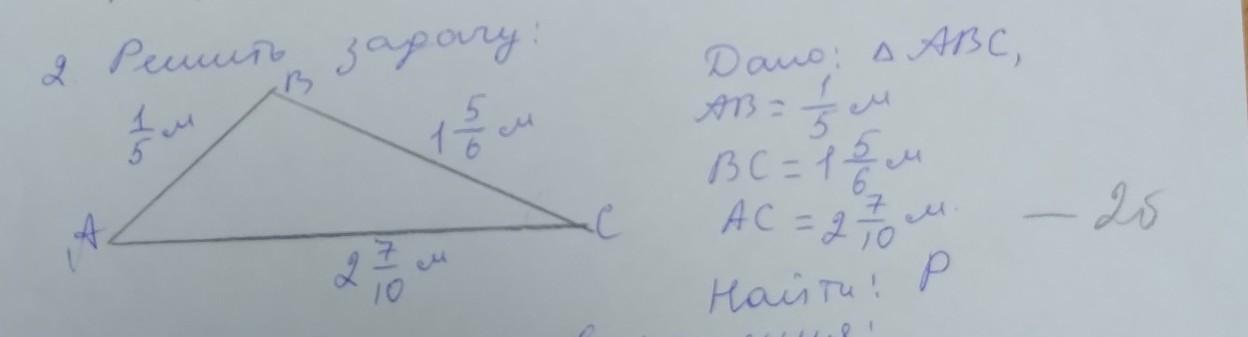 2. Решить задачу:
B
1/5 м
1 5/6 м
A
C
2 7/10 м
Дано: △ ABC,
AB = 1/5 м
BC = 1 5/6 м
AC = 2 7/10 м.
— 2б
Найти: P